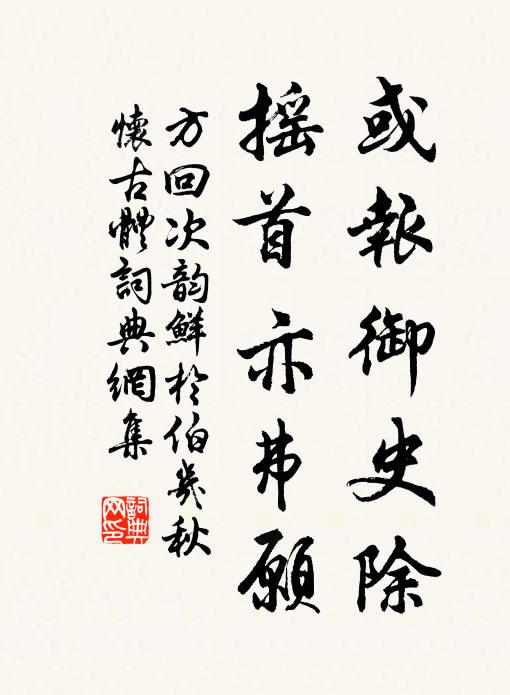 或報御史除
摇首亦弗願
方回次韵鮮於伯幾秋
懷古體詞典網集
詞典网印